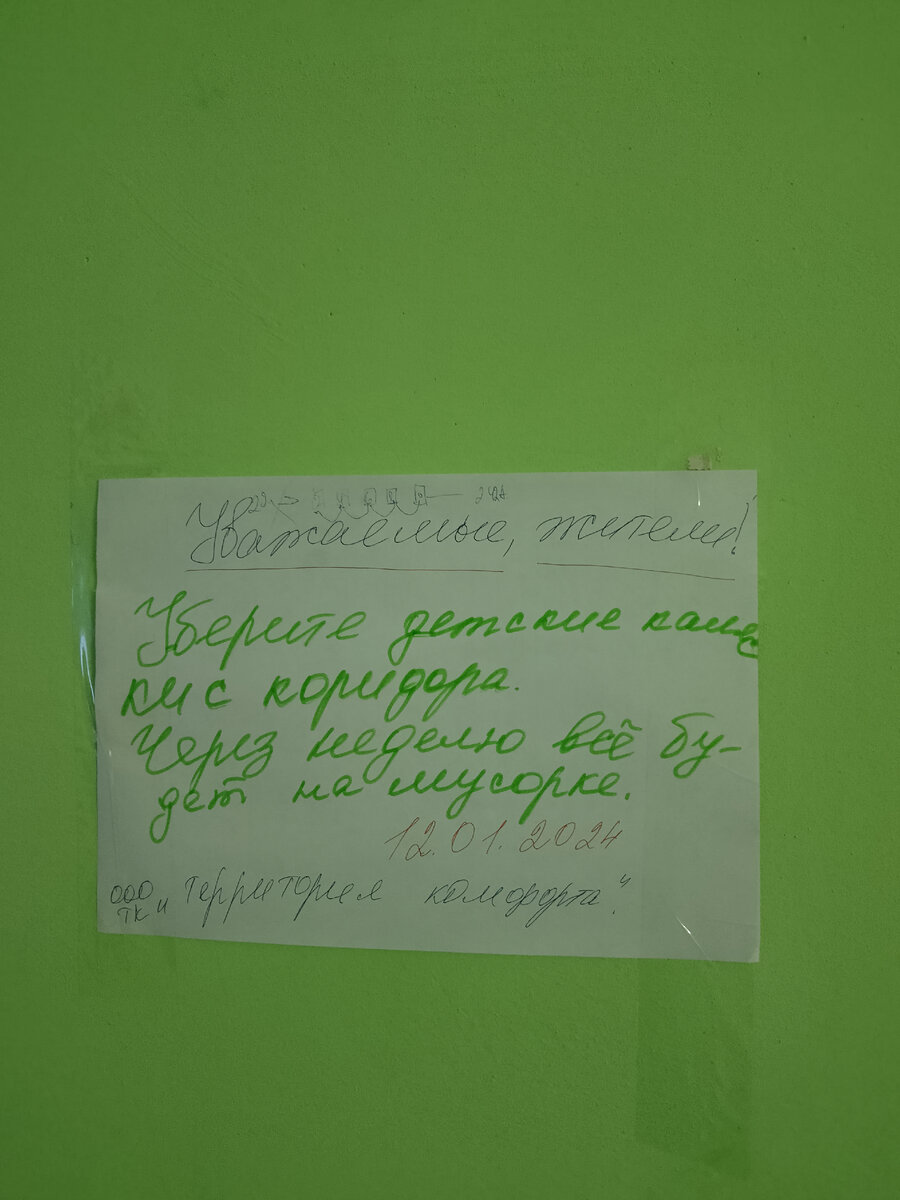 Уважаемые, жители!
Уберите детские коляс
ки с коридора.
Через неделю всё бу-
дет на мусорке.
12.01.2024
ООО
ТК "Территория комфорта".